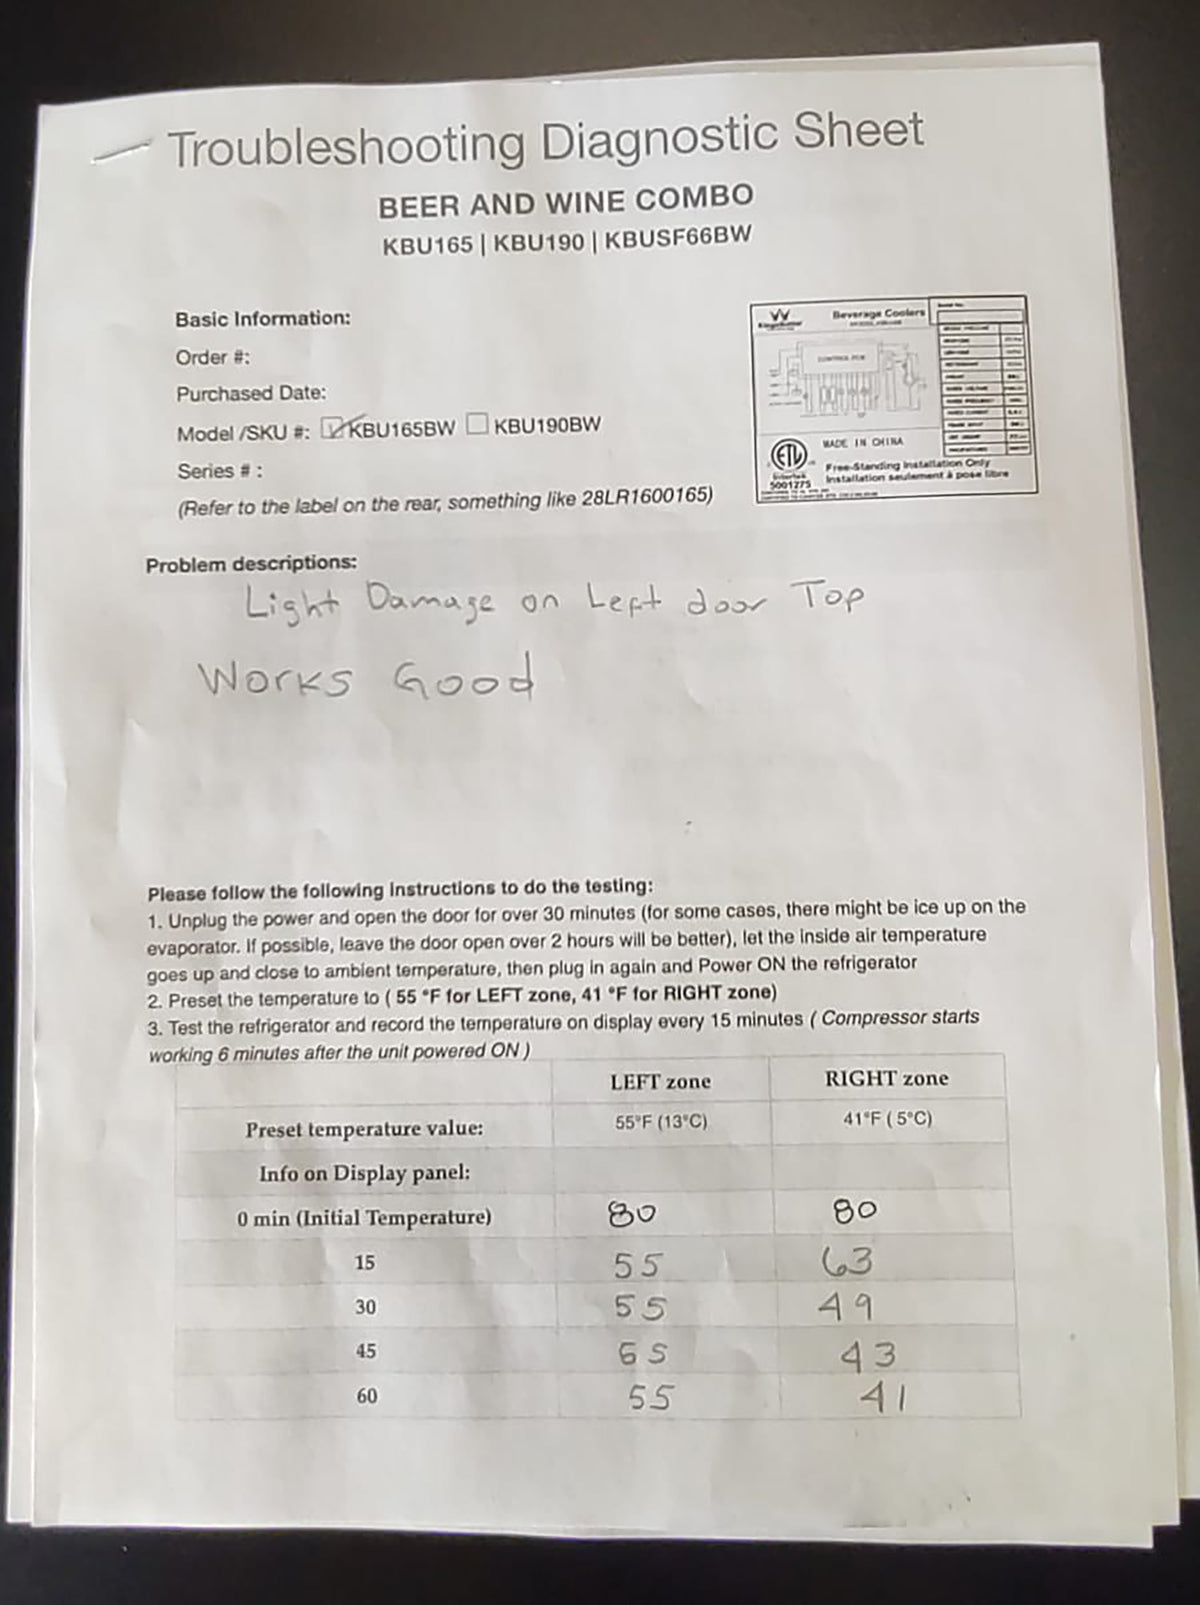 Troubleshooting Diagnostic Sheet
BEER AND WINE COMBO
KBU165 | KBU190 | KBUSF66BW
Basic Information:
Order #:
Purchased Date:
Model /SKU #: KBU165BW KBU190BW
Series # :
(Refer to the label on the rear, something like 28LR1600165)
Beverage Coolers
CONTROL PCB
ETL
Intertek
5001275
MADE IN CHINA
Free-Standing Installation Only
Installation seulement à pose libre
Problem descriptions:
Light Damage on Left door Top
Works Good
Please follow the following instructions to do the testing:
1. Unplug the power and open the door for over 30 minutes (for some cases, there might be ice up on the
evaporator. If possible, leave the door open over 2 hours will be better), let the inside air temperature
goes up and close to ambient temperature, then plug in again and Power ON the refrigerator
2. Preset the temperature to ( 55 °F for LEFT zone, 41 °F for RIGHT zone)
3. Test the refrigerator and record the temperature on display every 15 minutes ( Compressor starts
working 6 minutes after the unit powered ON )
LEFT zone RIGHT zone
Preset temperature value: 55°F (13°C) 41°F ( 5°C)
Info on Display panel:
0 min (Initial Temperature) 80 80
15 55 63
30 55 49
45 65 43
60 55 41